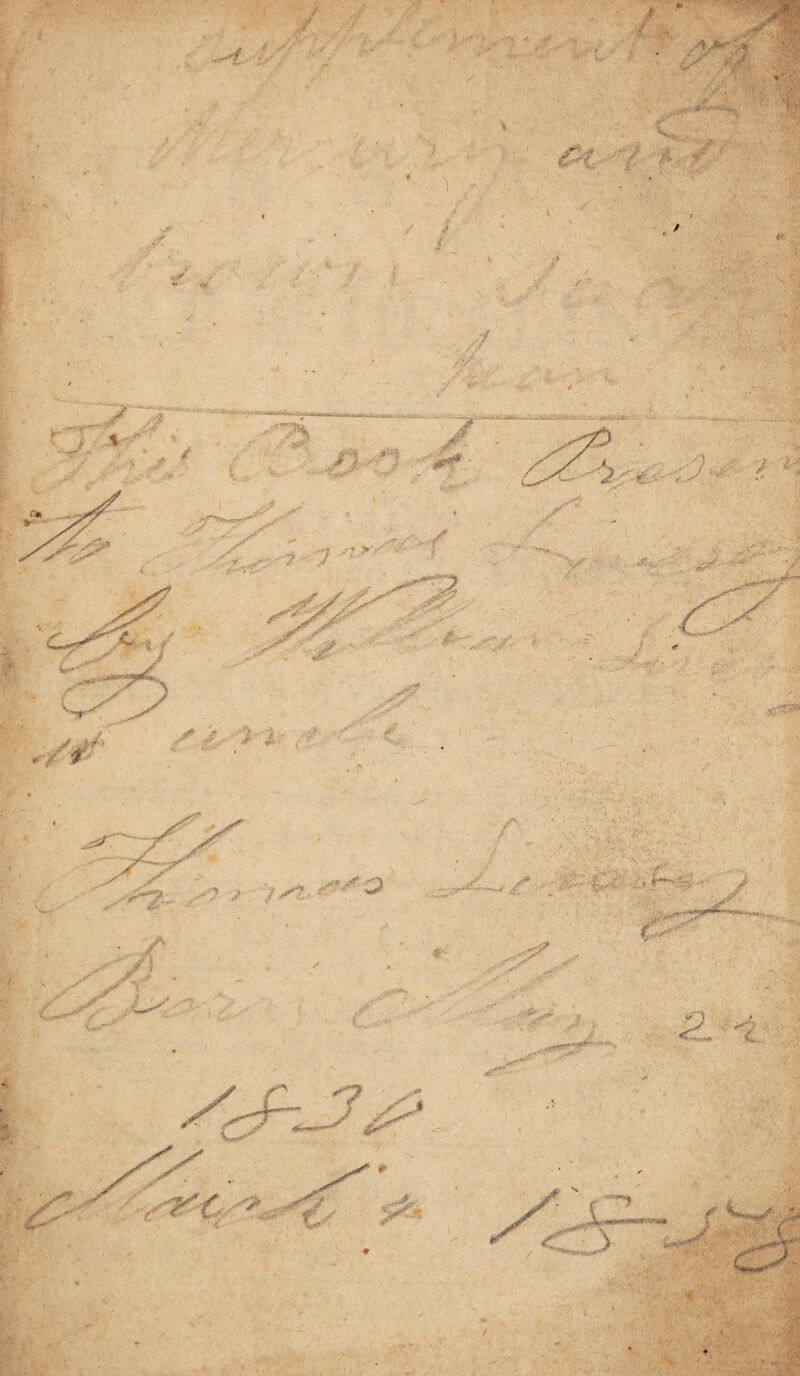 supplement of
Mercury and
brown Soap
This Book Presen
to Thomas Lindsey
by William
uncle
Thomas Lindsey
Born May 22
1830
March 4 1858